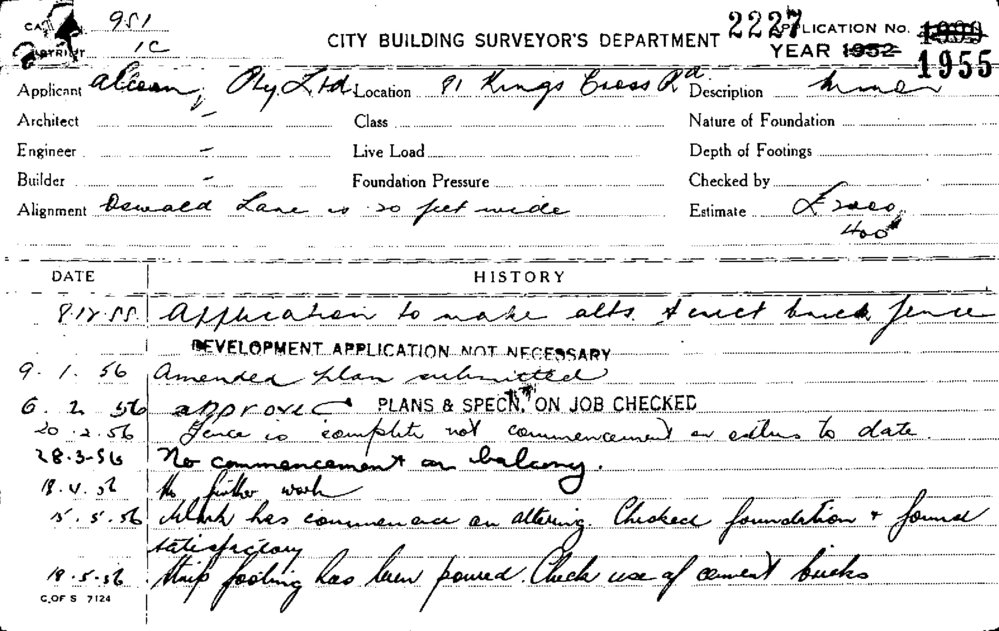 951
1C
CITY BUILDING SURVEYOR'S DEPARTMENT 2227 APPLICATION NO.
YEAR 1952 1955
Applicant Pty Ltd. Location 91 Kings Cross Rd. Description Minor
Architect - Class Nature of Foundation
Engineer - Live Load Depth of Footings
Builder - Foundation Pressure Checked by
Alignment Oswald Lane is 20 feet wide Estimate £2000
400
DATE HISTORY
8.12.55 Application to make alts. & erect brick fence
DEVELOPMENT APPLICATION NOT NECESSARY
9.1.56 Amended plan submitted
6.2.56 approved PLANS & SPECN. ON JOB CHECKED
20.2.56 Fence is complete not commencement on to date.
28.3.56 No commencement on balcony.
18.4.56 No further work
15.5.56 Work has commenced on altering. Checked foundation + found
satisfactory
18.5.56 Strip footing has been poured. Check use of cement bricks
C. OF S 7124